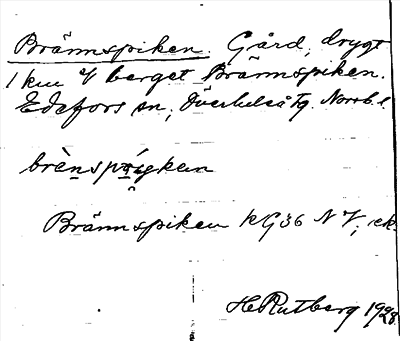 Brännspiken. Gård, drygt
1 km v berget Brännspiken.
Edefors sn, Överluleå tg. Norrb. l.
Brännspiken kG36 NV, ek.
H Rutberg 1928